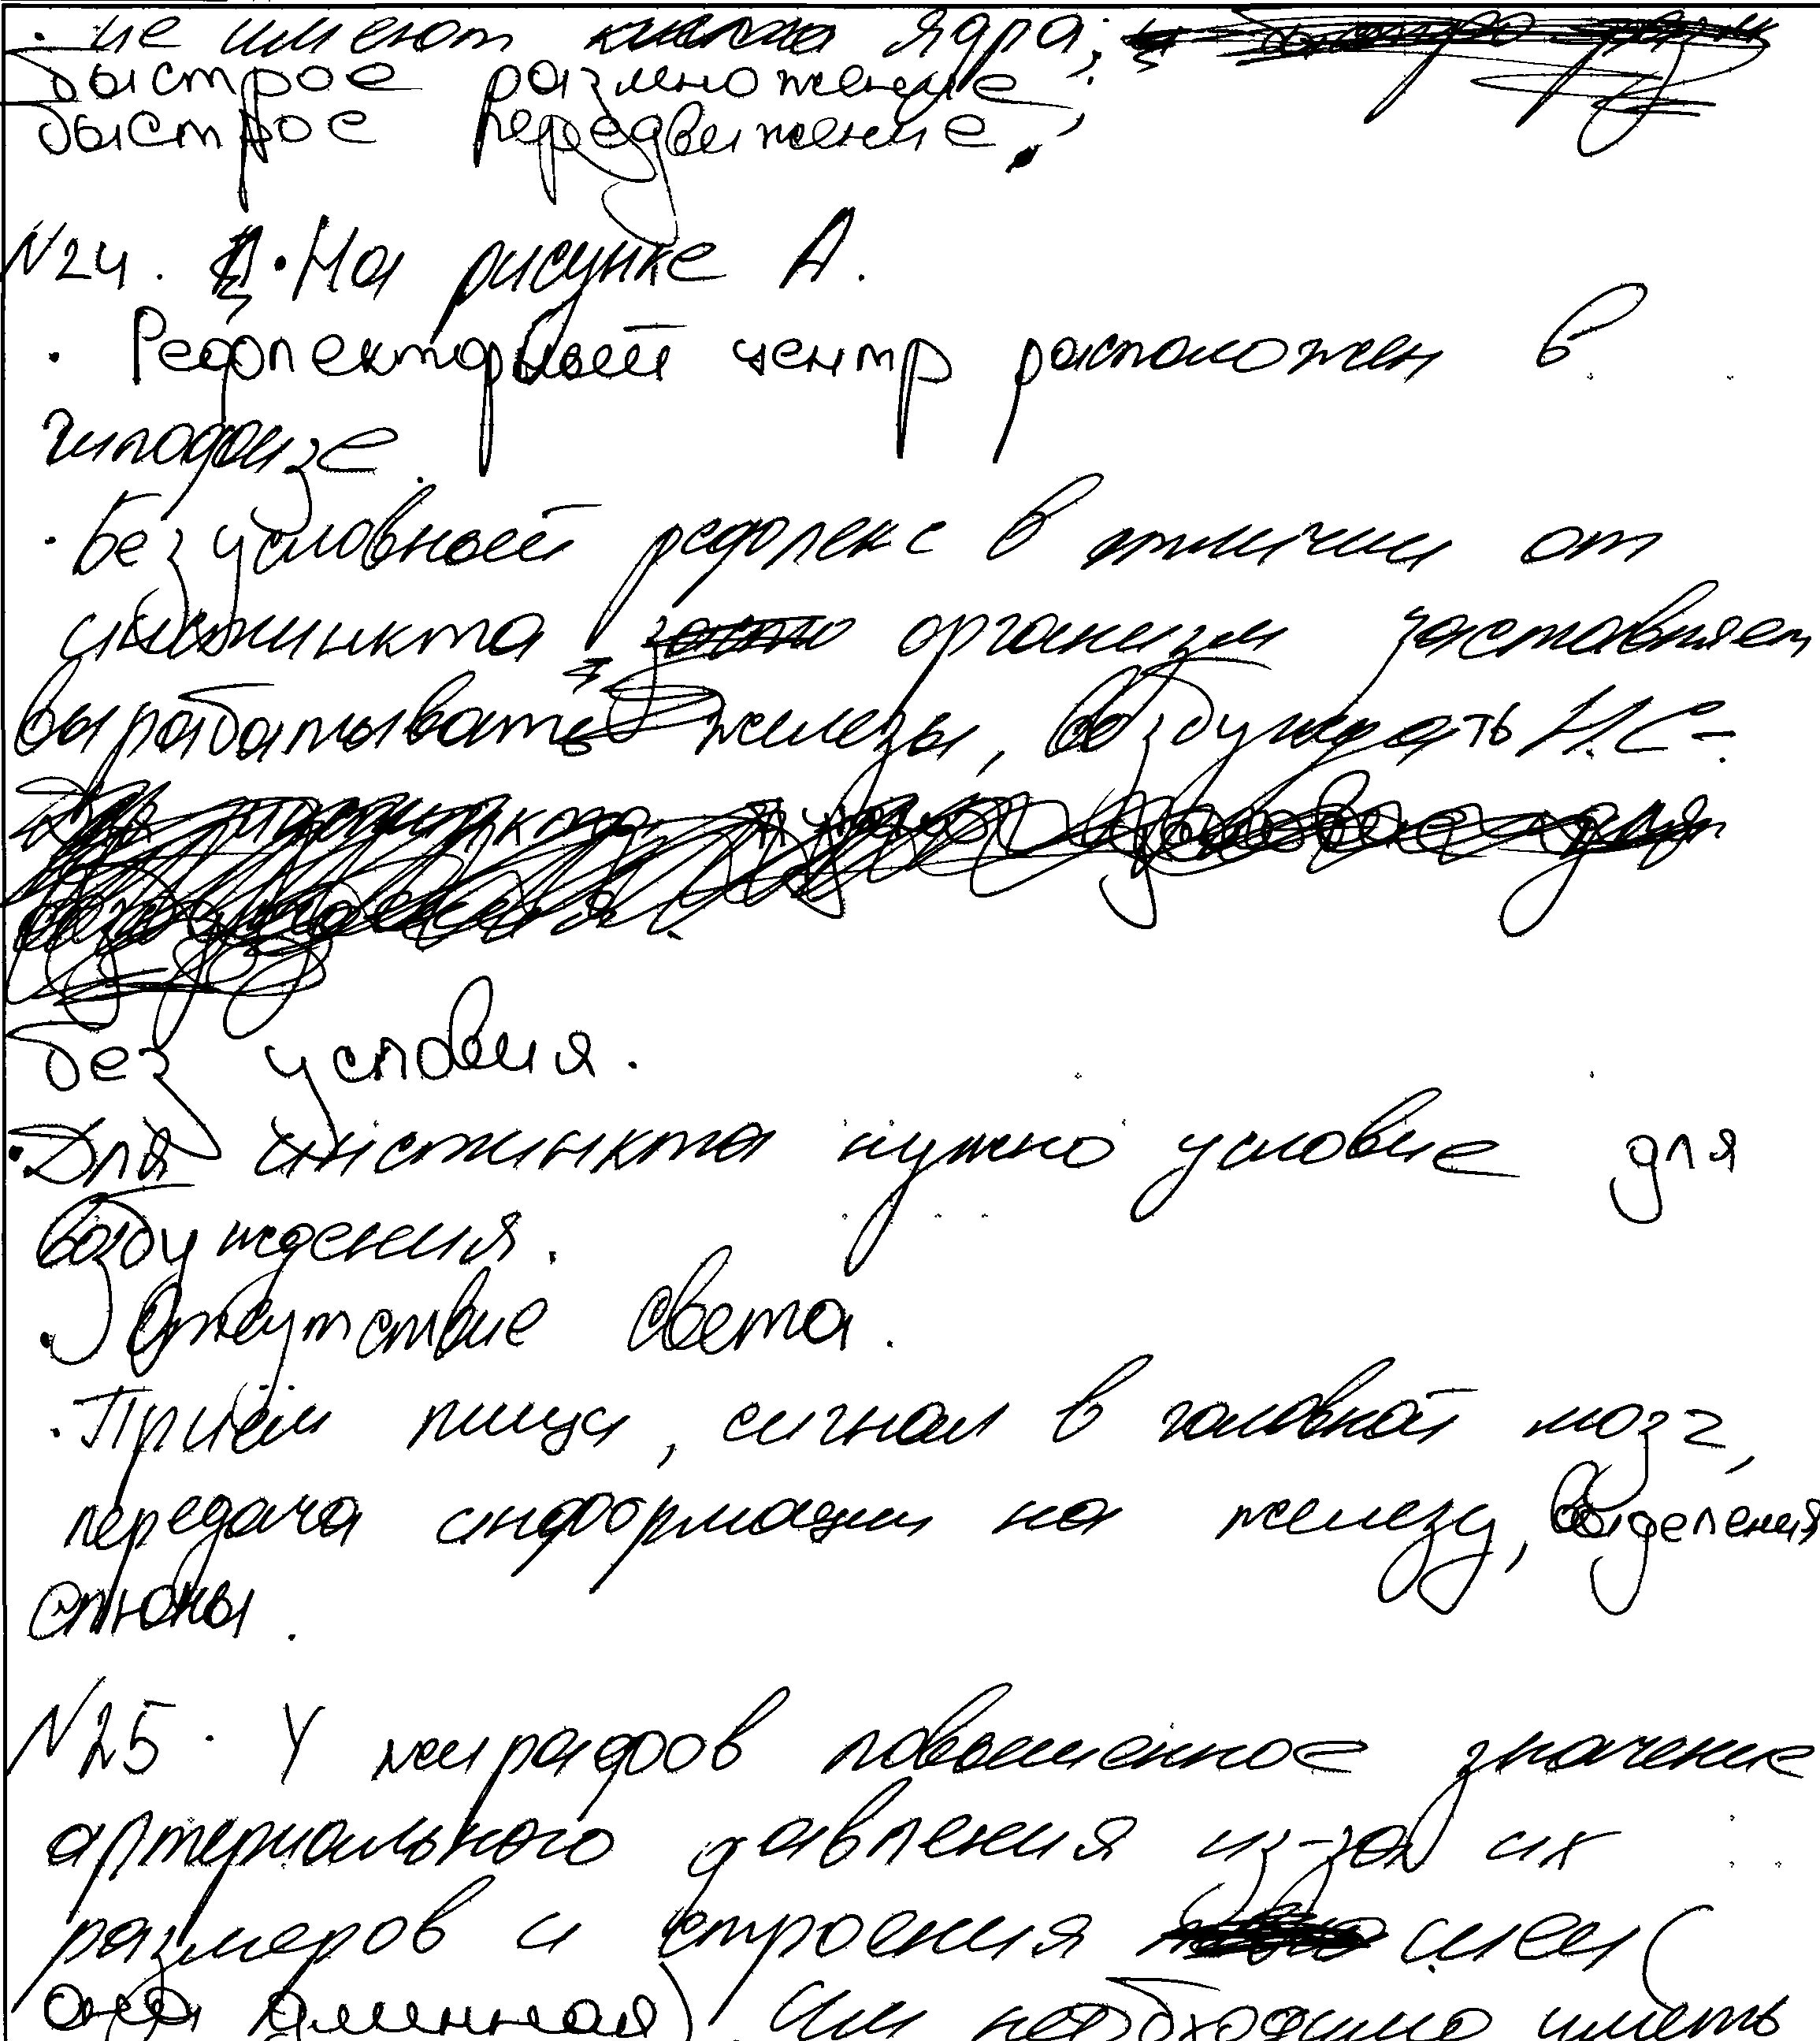 · не имеют ядра;
быстрое размножение;
быстрое передвижение.
№24. · На рисунке А.
· Рефлекторный центр расположен в
гипофизе.
· Безусловный рефлекс в отличии от
инстинкта организм заставляет
вырабатывать железы, возбуждать Н.С-
без условия.
· Для инстинкта нужно условие для
возбуждения.
· Отсутствие света.
· Приём пищи, сигнал в головной мозг,
передача информации на железу, выделения
слюны.
№25 · У жирафов повышенное значение
артериального давления из-за их
размеров и строения шеи (
она длинная). Им необходимо иметь